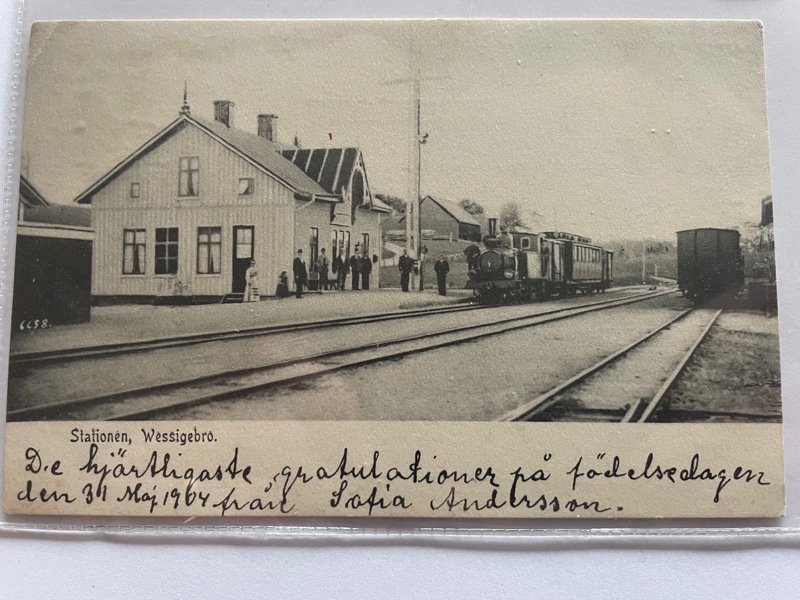 6658.
Stationen, Wessigebro.
De hjärtligaste gratulationer på födelsedagen
den 31 Maj 1904 från Sofia Andersson.